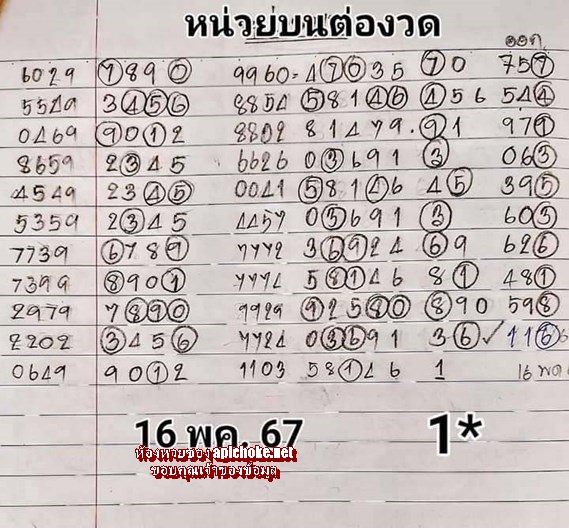 หน่วยบนต่องวด
ออก
6029 7890 9960= 47635 70 757
5549 3456 8854 58146 456 544
0469 9012 8802 81479. 91 971
8659 2345 6626 03691 3 063
4549 2345 0041 58146 45 395
5359 2345 4457 03691 3 603
7739 6789 7772 36924 69 626
7399 8901 7774 58146 81 481
2979 7890 9929 92580 890 598
2202 3456 7724 03691 36✓ 116
0649 9012 1103 58146 1 16 พค
16 พค. 67 1*
ห้องหวยซอง aplchoke.net
ขอบคุณเจ้าของข้อมูล